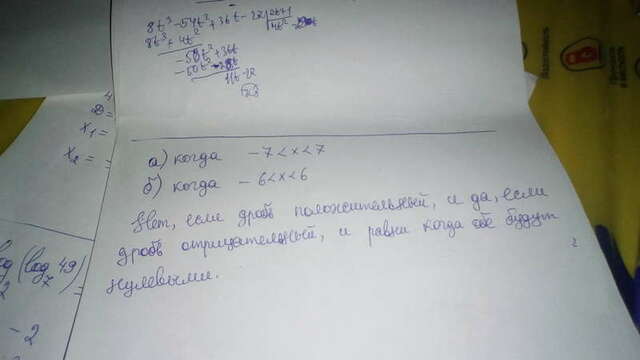 8t³-54t²+36t-22 |2t+1
8t³+4t²
-50t²+36t
а) когда -7<x<7
б) когда -6<x<6
Нет, если дробь положительный, и да, если
дробь отрицательный, и равны когда обе будут
нулевыми.
D=
x₁=
x₂= =
(log₇ 49)
- 2